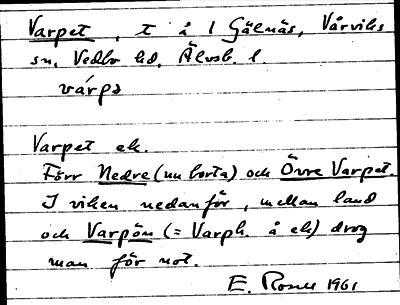 Varpet, t å 1 Gälnäs, Vårviks
sn, Vedbo hd, Älvsb. l.
várpə
Varpet ek.
Förr Nedre (nu borta) och Övre Varpet.
I viken nedanför, mellan land
och Varpön (= Varph. å ek) drog
man för not.
E. 1961